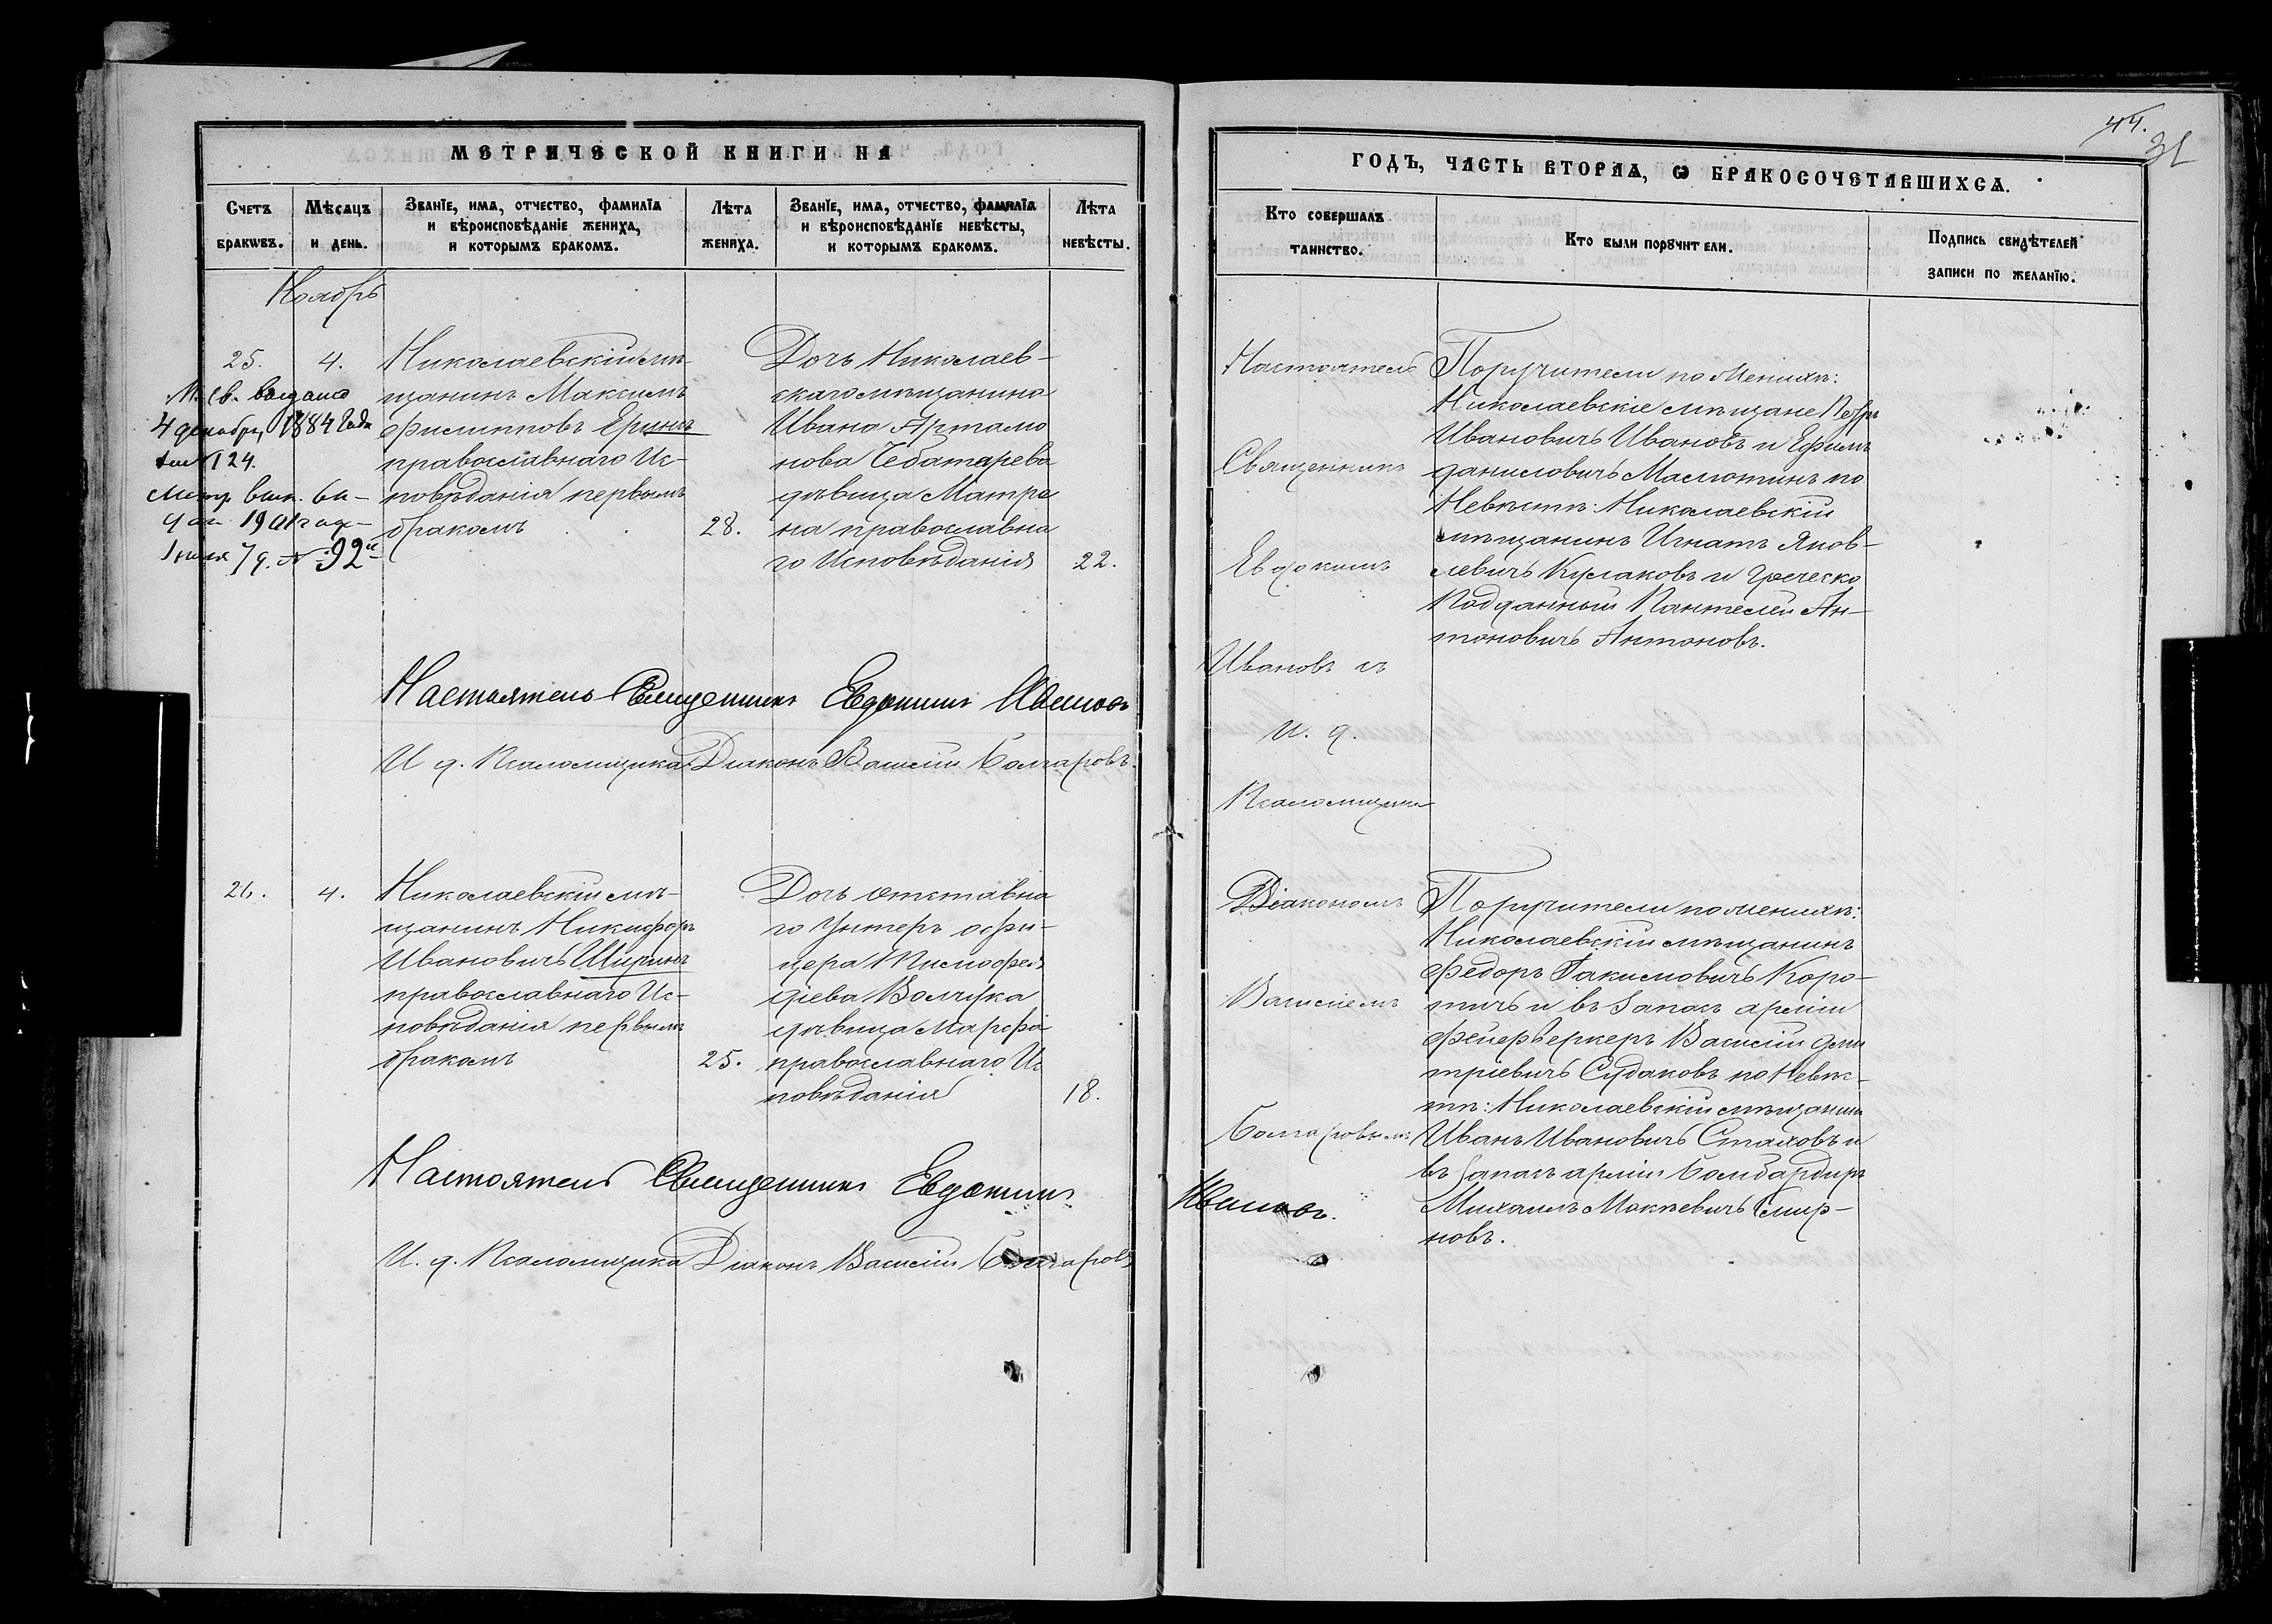 МЕТРИЧЕСКОЙ КНИГИ НА
Счетъ бракѡвъ.
Мѣсѧцъ и день.
Званїе, имѧ, отчество, фамилїѧ и вѣроисповѣданїе жениха, и которымъ бракомъ.
Лѣта жениха.
Званїе, имѧ, отчество, фамилїѧ и вѣроисповѣданїе невѣсты, и которымъ бракомъ.
Лѣта невѣсты.
Ноябрь
25.
4.
выдано
4 декабря 1884 года
124.
92
Николаевскій мѣ-
щанинъ Максимъ
Филипповъ Еринъ
православнаго Ис-
повѣданія первымъ
бракомъ
28.
Дочь Николаев-
скаго мѣщанина
Ивана Артамо
нова Чебатарева
дѣвица Матре
на православна
го Исповѣданія
22.
Настоятель Священникъ Евдокимъ Ивановъ
И д. Псаломщика Діаконъ Василій Болгаровъ.
26.
4.
Николаевскій мѣ-
щанинъ Никифоръ
Ивановичъ Ширинъ
православнаго Ис-
повѣданія первымъ
бракомъ
25.
Дочь отставна
го Унтеръ офи-
цера Тимофея
дѣвица Марфа
православнаго Ис
повѣданія
18.
Настоятель Священникъ Евдокимъ
И. д. Псаломщика Діаконъ Василій Болгаровъ
44.
31
ГОДЪ, ЧАСТЬ ВТОРАѦ, Ѡ БРАКОСОЧЕТАВШИХСѦ.
Кто совершалъ таинство.
Кто были порꙋчители.
Подпись свидѣтелей записи по желанїю.
Настоятель
Священникъ
Евдокимъ
Ивановъ съ
И. д.
Псаломщика
Діакономъ
Василіемъ
Болгаровымъ
Ивановъ.
Поручители по Женихѣ:
Николаевскіе мѣщане Петръ
Ивановичъ Ивановъ и Ефимъ
Даниловичъ Маслютинъ по
Невѣстѣ: Николаевскій
мѣщанинъ Игнатъ Яков-
левичъ Кулаковъ и Греческо
Подданный Пантелей Ан-
тоновичъ Антоновъ.
Поручители по женихѣ:
Николаевскій мѣщанинъ
Федоръ Іакимовичъ Коро-
тичъ и въ Запасѣ арміи
Фейерверкеръ Василій Дми
тріевичъ Судаковъ по Невѣс-
тѣ: Николаевскій мѣщанинъ
Иванъ Ивановичъ Стаховъ и
въ Запасѣ арміи Бомбардиръ
Михаилъ Мокѣевичъ Смир-
новъ.